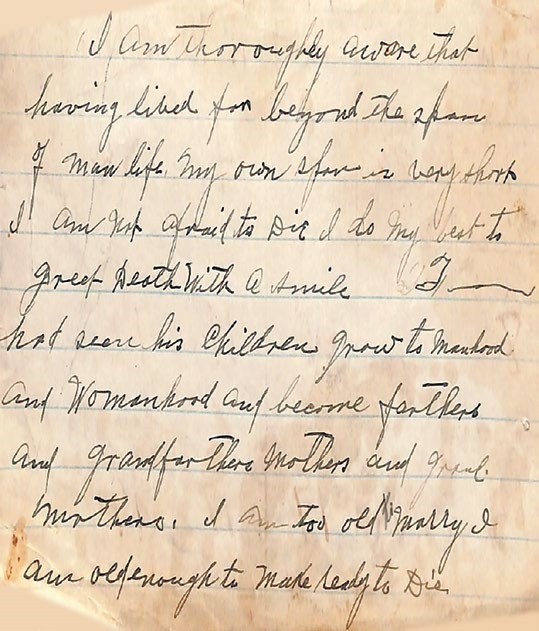 I am thoroughly aware that
having lived far beyond the span
of man life. My own span is very short
I am not afraid to Die I do My best to
greet Death With A smile T
had seen his Children grow to Manhood
and Womanhood and become farthers
and Grandfarthers Mothers and Grand
Mothers. I am too old Marry I
am old enough to Make ready to Die